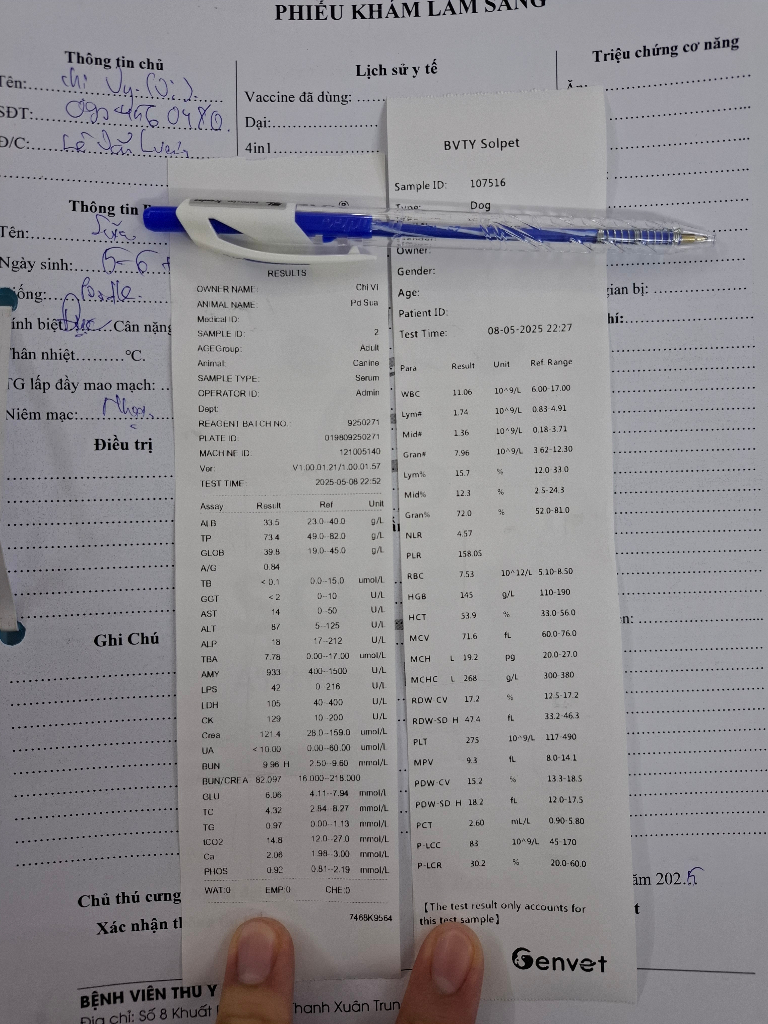 PHIẾU KHÁM LÂM SÀNG
Thông tin chủ
Tên:
SĐT:
Đ/C:
Lịch sử y tế
Vaccine đã dùng:
Dại:
4in1
Triệu chứng cơ năng
Thông tin
Tên: Sữa
Ngày sinh:
Cân nặng
Thân nhiệt.........°C.
TG lấp đầy mao mạch:
Niêm mạc:
Điều trị
Ghi Chú
RESULTS
OWNER NAME: Chi VI
ANIMAL NAME: Pd Sua
Medical ID:
SAMPLE ID: 2
AGEGroup: Adult
Animal: Canine
SAMPLE TYPE: Serum
OPERATOR ID: Admin
Dept:
REAGENT BATCH NO.: 9250271
PLATE ID: 019809250271
MACHINE ID: 121005140
Ver: V1.00.01.21/1.00.01.57
TEST TIME: 2025-05-08 22:52
Assay Result Ref Unit
ALB 33.5 23.0--40.0 g/L
TP 73.4 49.0--82.0 g/L
GLOB 39.8 19.0--45.0 g/L
A/G 0.84
TB < 0.1 0.0--15.0 umol/L
GGT < 2 0--10 U/L
AST 14 0--50 U/L
ALT 87 5--125 U/L
ALP 18 17--212 U/L
TBA 7.78 0.00--17.00 umol/L
AMY 933 400--1500 U/L
LPS 42 0--216 U/L
LDH 105 40--400 U/L
CK 129 10--200 U/L
Crea 121.4 28.0--159.0 umol/L
UA < 10.00 0.00--60.00 umol/L
BUN 9.96 H 2.50--9.60 mmol/L
BUN/CREA 82.097 16.000--218.000
GLU 6.06 4.11--7.94 mmol/L
TC 4.32 2.84--8.27 mmol/L
TG 0.97 0.00--1.13 mmol/L
tCO2 14.8 12.0--27.0 mmol/L
Ca 2.06 1.98--3.00 mmol/L
PHOS 0.92 0.81--2.19 mmol/L
WAT:0 EMP:0 CHE:0
7468K9564
BVTY Solpet
Sample ID: 107516
Type: Dog
Owner:
Gender:
Age:
Patient ID:
Test Time: 08-05-2025 22:27
Para Result Unit Ref Range
WBC 11.06 10^9/L 6.00-17.00
Lym# 1.74 10^9/L 0.83-4.91
Mid# 1.36 10^9/L 0.18-3.71
Gran# 7.96 10^9/L 3.62-12.30
Lym% 15.7 % 12.0-33.0
Mid% 12.3 % 2.5-24.3
Gran% 72.0 % 52.0-81.0
NLR 4.57
PLR 158.05
RBC 7.53 10^12/L 5.10-8.50
HGB 145 g/L 110-190
HCT 53.9 % 33.0-56.0
MCV 71.6 fL 60.0-76.0
MCH L 19.2 pg 20.0-27.0
MCHC L 268 g/L 300-380
RDW-CV 17.2 % 12.5-17.2
RDW-SD H 47.4 fL 33.2-46.3
PLT 275 10^9/L 117-490
MPV 9.3 fL 8.0-14.1
PDW-CV 15.2 % 13.3-18.5
PDW-SD H 18.2 fL 12.0-17.5
PCT 2.60 mL/L 0.90-5.80
P-LCC 83 10^9/L 45-170
P-LCR 30.2 % 20.0-60.0
【The test result only accounts for
this test sample】
Genvet
Chủ thú cưng
Xác nhận
BỆNH VIÊN THU Y
Địa chỉ: Số 8 Khuất
Thanh Xuân Trun